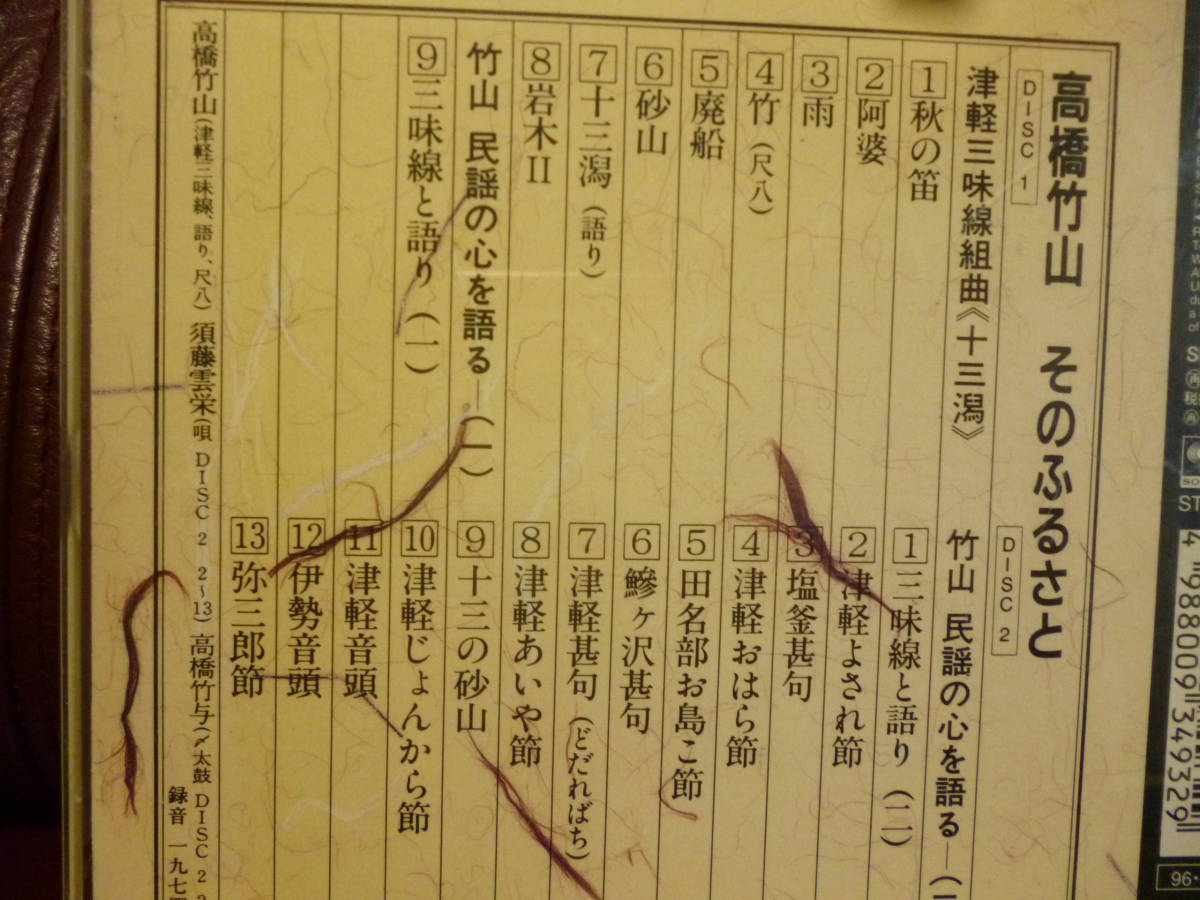 高橋竹山 そのふるさと
DISC 1
津軽三味線組曲《十三潟》
1 秋の笛
2 阿婆
3 雨
4 竹（尺八）
5 廃船
6 砂山
7 十三潟（語り）
8 岩木II
竹山 民謡の心を語る―（一）
9 三味線と語り（一）
DISC 2
竹山 民謡の心を語る―（
1 三味線と語り（二）
2 津軽よされ節
3 塩釜甚句
4 津軽おはら節
5 田名部お島こ節
6 鰺ヶ沢甚句
7 津軽甚句（どだればち）
8 津軽あいや節
9 十三の砂山
10 津軽じょんから節
11 津軽音頭
12 伊勢音頭
13 弥三郎節
高橋竹山（津軽三味線、語り、尺八） 須藤雲栄（唄 DISC 2 2～13） 高橋竹与（〆太鼓 DISC 2
録音 一九七
4 988009 349329
96・